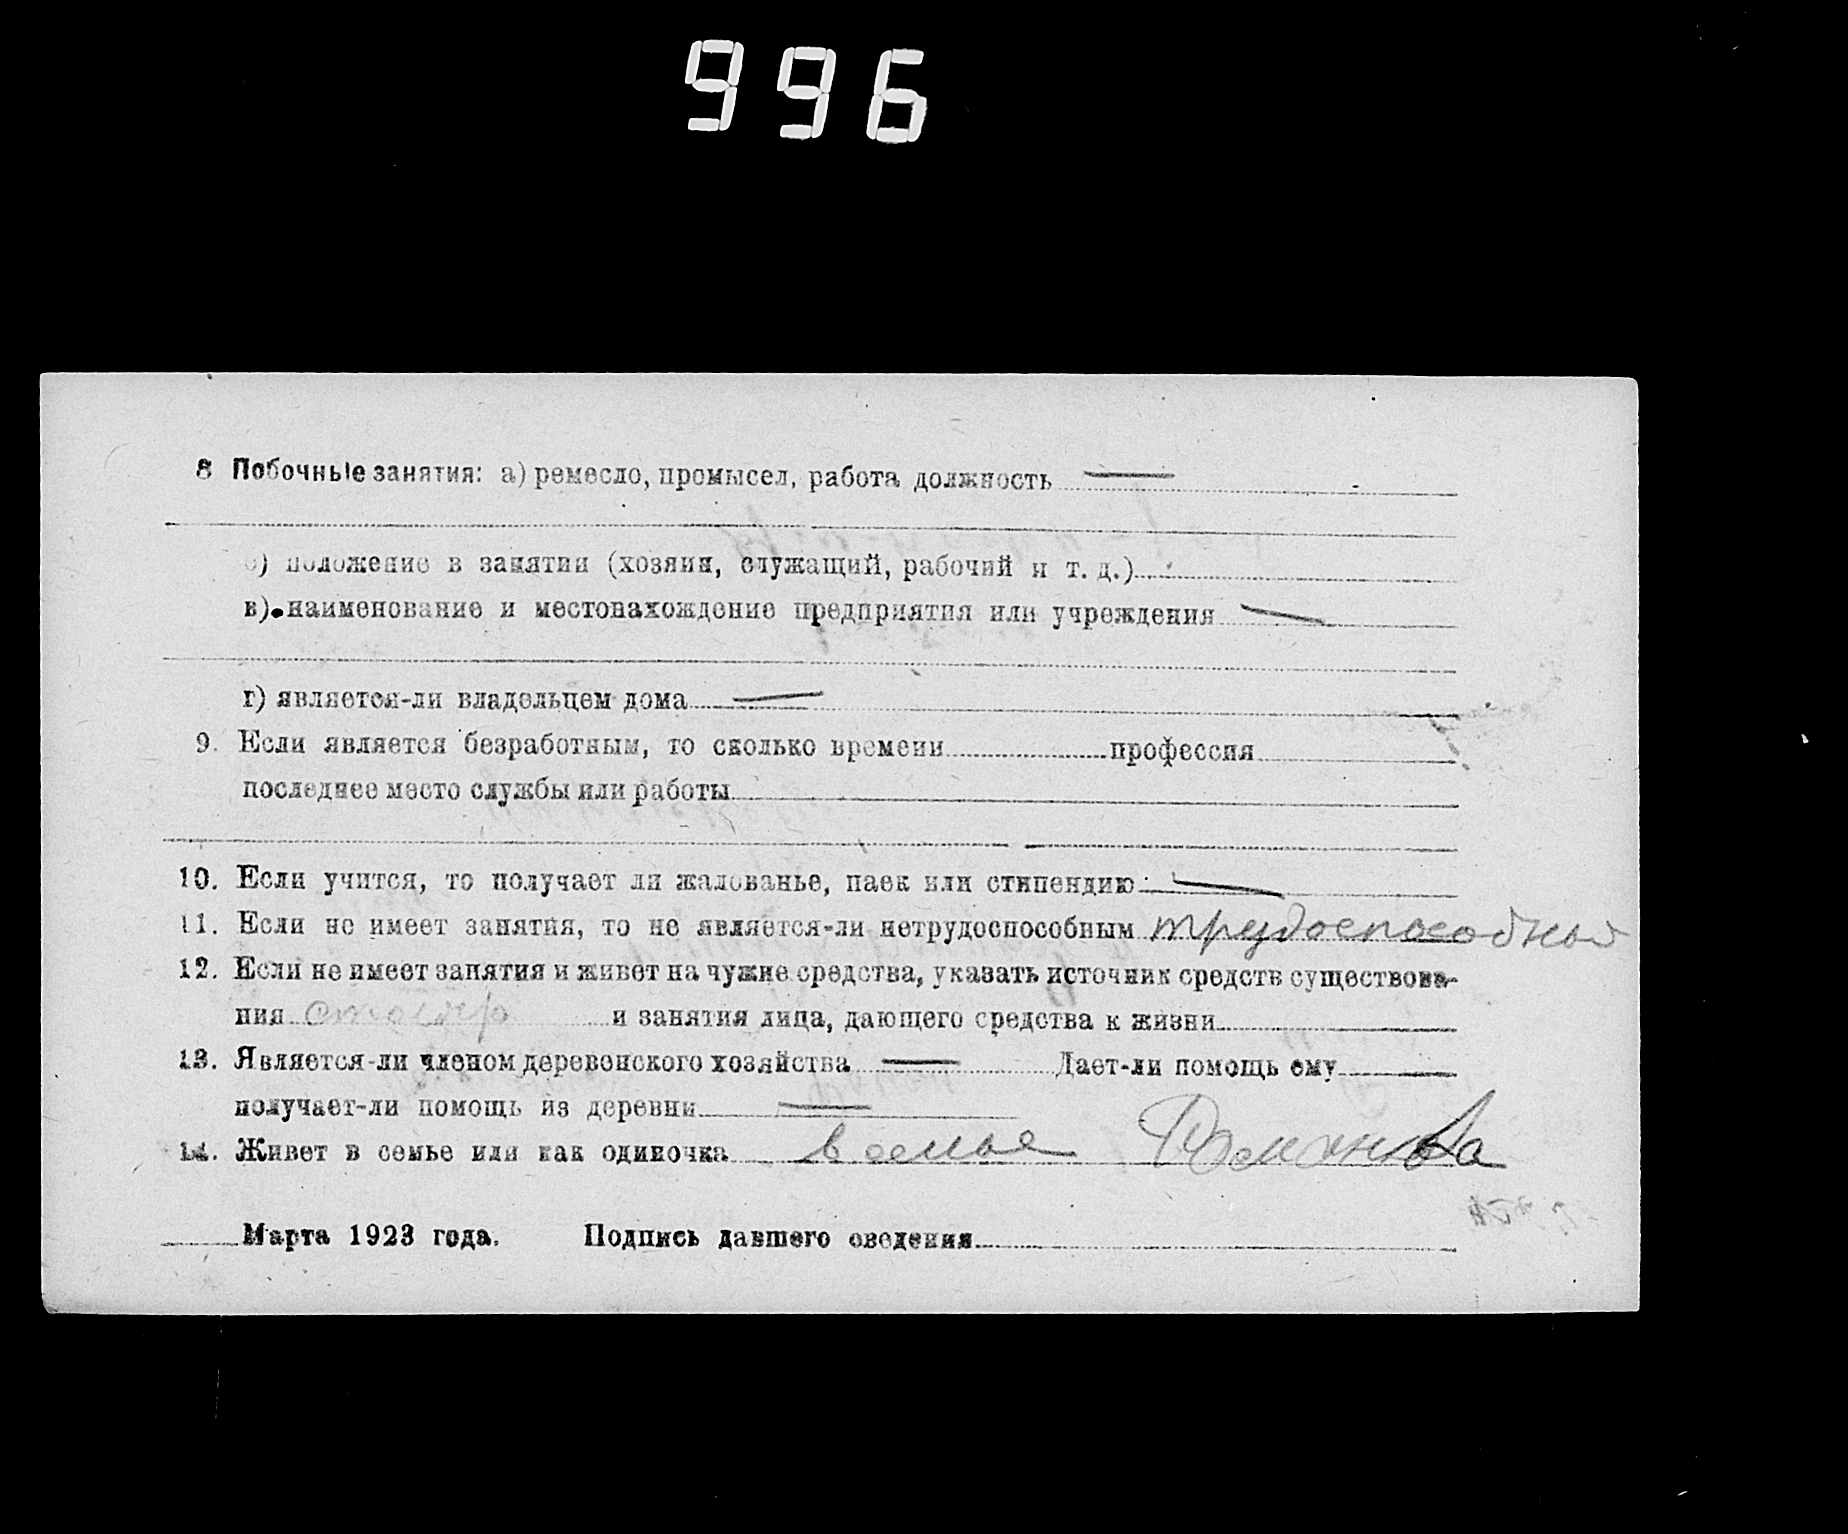 996
8 Побочные занятия: а) ремесло, промысел, работа должность —
б) положение в занятии (хозяин, служащий, рабочий и т. д.)
в). наименование и местонахождение предприятия или учреждения —
г) является-ли владельцем дома —
9. Если является безработным, то сколько времени профессия
последнее место службы или работы
10. Если учится, то получает ли жалованье, паек или стипендию —
11. Если не имеет занятия, то не является-ли нетрудоспособным трудоспособный
12. Если не имеет занятия и живет на чужие средства, указать источник средств существова-
ния и занятия лица, дающего средства к жизни
13. Является-ли членом деревенского хозяйства — Дает-ли помощь ему —
получает-ли помощь из деревни —
14. Живет в семье или как одиночка в семье Романова
Марта 1923 года. Подпись давшего сведения